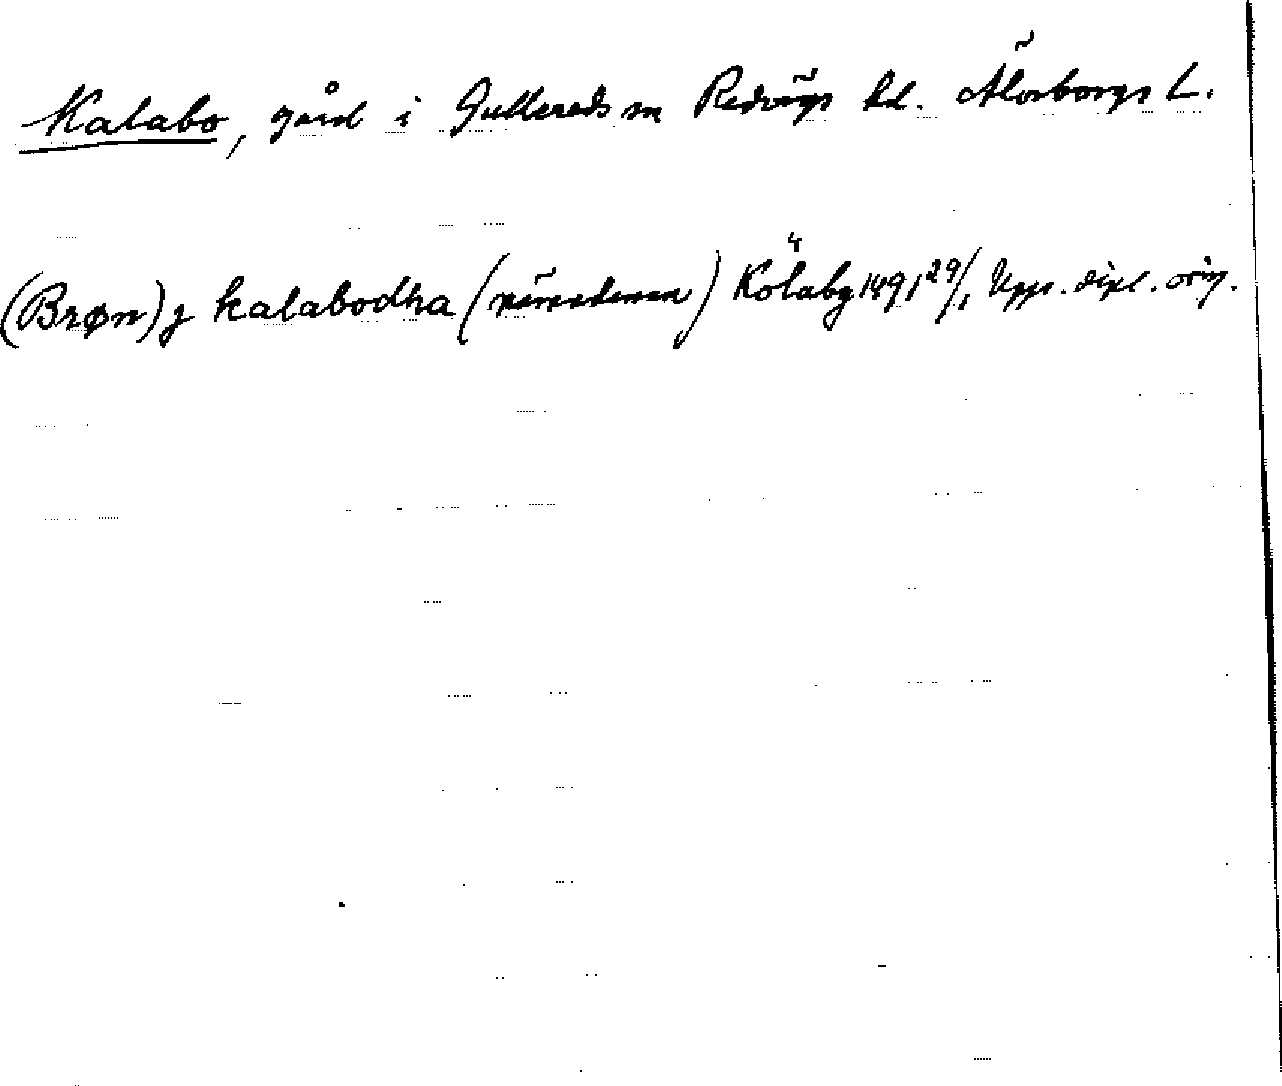 Kalabo, gård i Gullereds sn Redvägs hd. Älvsborgs L.
(Brøn) j kalabodha (nämndeman) Kölaby 1491 29/1, Upps. dipl. orig.